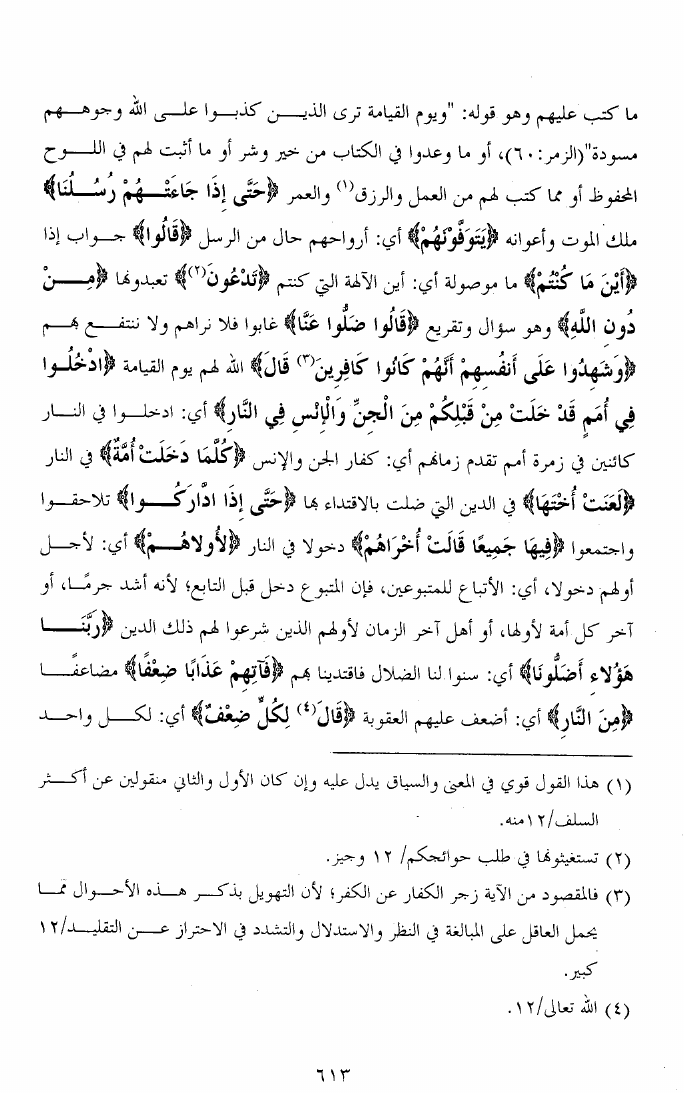 ما كتب عليهم وهو قوله: "ويوم القيامة ترى الذيـــن كذبــوا علــى الله وجوهـــهم
مسودة"(الزمر: ٦٠)، أو ما وعدوا في الكتاب من خير وشر أو ما أثبت لهم في اللـــوح
المحفوظ أو مما كتب لهم من العمل والرزق(١) والعمر ﴿حَتَّى إِذَا جَاءَتْـــهُمْ رُسُـــلُنَا﴾
ملك الموت وأعوانه ﴿يَتَوَفَّوْنَهُمْ﴾ أي: أرواحهم حال من الرسل ﴿قَالُوا﴾ جـــواب إذا
﴿أَيْنَ مَا كُنْتُمْ﴾ ما موصولة أي: أين الآلهة التي كنتم ﴿تَدْعُونَ(٢)﴾ تعبدونها ﴿مِـــنْ
دُونِ اللَّهِ﴾ وهو سؤال وتقريع ﴿قَالُوا ضَلُّوا عَنَّا﴾ غابوا فلا نراهم ولا ننتفـــع بهـــم
﴿وَشَهِدُوا عَلَى أَنفُسِهِمْ أَنَّهُمْ كَانُوا كَافِرِينَ(٣) قَالَ﴾ الله لهم يوم القيامة ﴿ادْخُلُـــوا
فِي أُمَمٍ قَدْ خَلَتْ مِنْ قَبْلِكُمْ مِنَ الْجِنِّ وَالْإِنْسِ فِي النَّارِ﴾ أي: ادخلـــوا في النـــار
كائنين في زمرة أمم تقدم زمانهم أي: كفار الجن والإنس ﴿كُلَّمَا دَخَلَتْ أُمَّةٌ﴾ في النار
﴿لَعَنَتْ أُخْتَهَا﴾ في الدين التي ضلت بالاقتداء بها ﴿حَتَّى إِذَا ادَّارَكُـــوا﴾ تلاحقـــوا
واجتمعوا ﴿فِيهَا جَمِيعًا قَالَتْ أُخْرَاهُمْ﴾ دخولا في النار ﴿لأُولاهُـــمْ﴾ أي: لأجـــل
أولهم دخولا، أي: الأتباع للمتبوعين، فإن المتبوع دخل قبل التابع؛ لأنه أشد جرمًـــا، أو
آخر كل أمة لأولها، أو أهل آخر الزمان لأولهم الذين شرعوا لهم ذلك الدين ﴿رَبَّنَـــا
هَؤُلاءِ أَضَلُّونَا﴾ أي: سنوا لنا الضلال فاقتدينا بهم ﴿فَآتِهِمْ عَذَابًا ضِعْفًا﴾ مضاعفًـــا
﴿مِنَ النَّارِ﴾ أي: أضعف عليهم العقوبة ﴿قَالَ(٤) لِكُلٍّ ضِعْفٌ﴾ أي: لكـــل واحـــد
(١) هذا القول قوي في المعنى والسياق يدل عليه وإن كان الأول والثاني منقولين عن أكـــثر
السلف/١٢منه.
(٢) تستغيثونها في طلب حوائجكم/ ١٢ وجيز.
(٣) فالمقصود من الآية زجر الكفار عن الكفر؛ لأن التهويل بذكـــر هـــذه الأحـــوال ممـــا
يحمل العاقل على المبالغة في النظر والاستدلال والتشدد في الاحتراز عـــن التقليـــد/١٢
كبير.
(٤) الله تعالى/١٢.
٦١٣